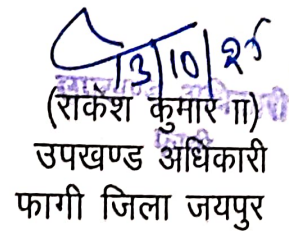 13/10/25
(राकेश कुमार II)
उपखण्ड अधिकारी
फागी जिला जयपुर